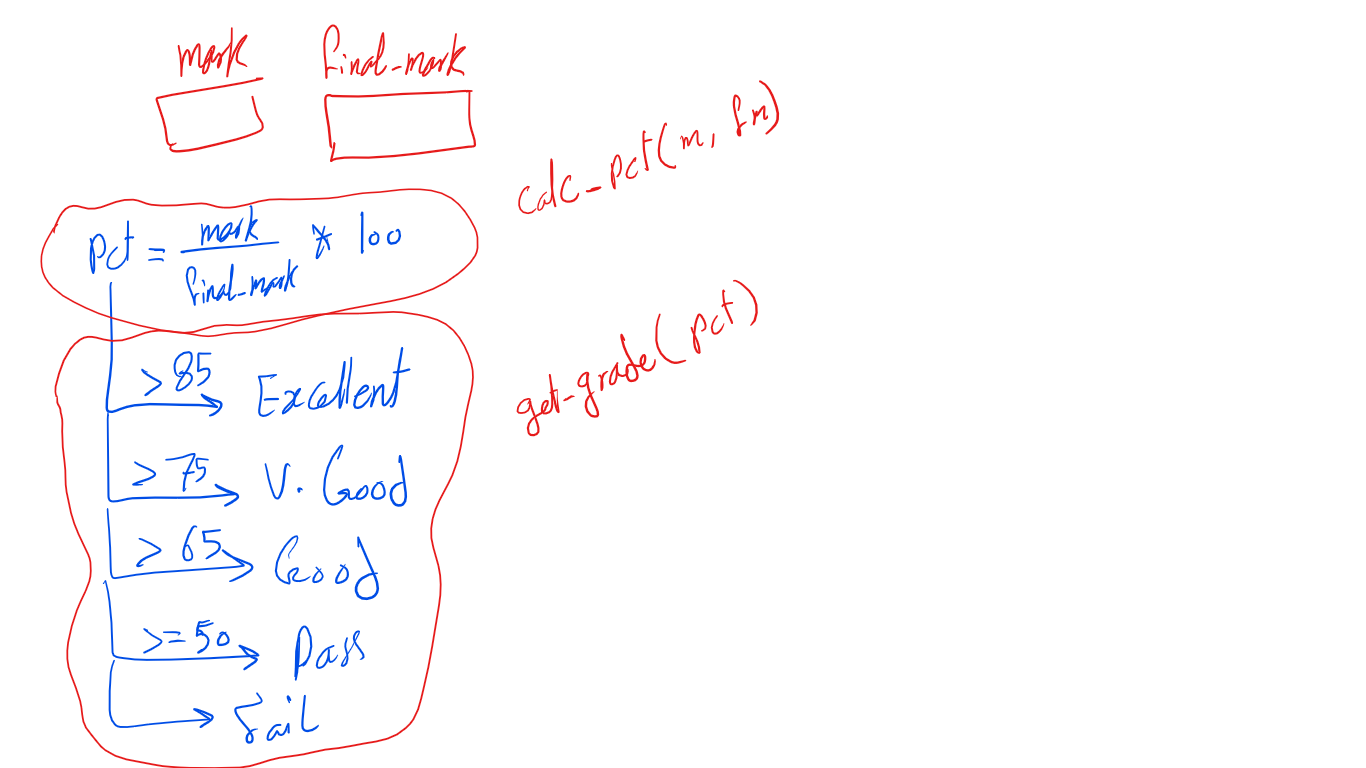 mark final_mark
calc_pct(m, fm)
pct = mark / final_mark * 100
get_grade(pct)
> 85 Excellent
> 75 V. Good
> 65 Good
>= 50 Pass
fail